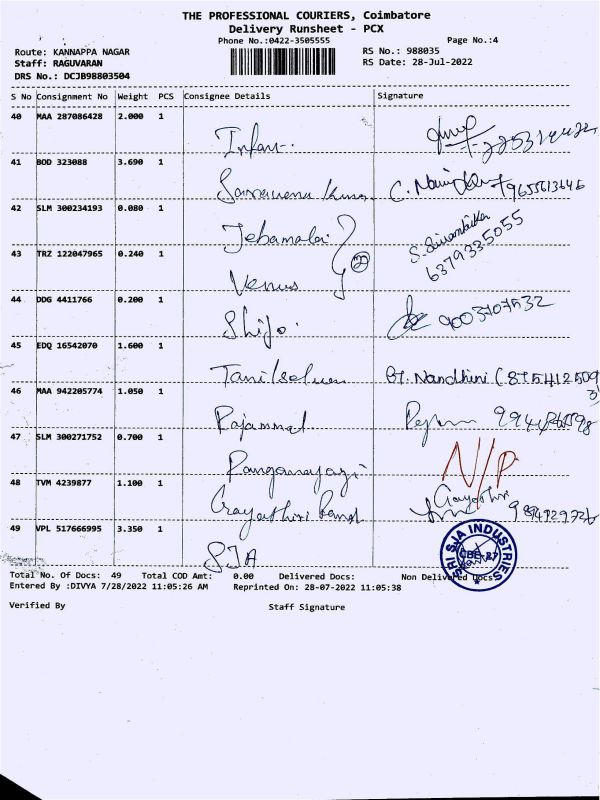 THE PROFESSIONAL COURIERS, Coimbatore
Delivery Runsheet - PCX
Phone No.:0422-3505555 Page No.:4
Route: KANNAPPA NAGAR RS No.: 988035
Staff: RAGUVARAN RS Date: 28-Jul-2022
DRS No.: DCJB98803504
S No Consignment No Weight PCS Consignee Details Signature
40 MAA 287086428 2.000 1
Infan..
41 BOD 323088 3.690 1
Saravana Kumar 9655613646
42 SLM 300234193 0.080 1
Jebamalai
43 TRZ 122047965 0.240 1 2 6379335055
Venus
44 DDG 4411766 0.200 1
Shijo. 9003707532
45 EDQ 16542070 1.600 1
Tamilselvan Nandhini
46 MAA 942205774 1.050 1
Rajammal
47 SLM 300271752 0.700 1
Ranganayagi N/P
48 TVM 4239877 1.100 1
Gayathiri Gayathri
49 VPL 517666995 3.350 1
SJA SRI SJA INDUSTRIES CBE-27
Total No. Of Docs: 49 Total COD Amt: 0.00 Delivered Docs: Non Delivered Docs:
Entered By :DIVYA 7/28/2022 11:05:26 AM Reprinted On: 28-07-2022 11:05:38
Verified By Staff Signature